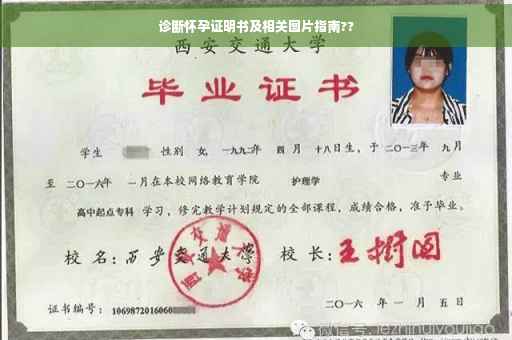 诊断怀孕证明书及相关图片指南??
西安交通大学
毕业证书
学生 性别 女, 一九九二年 四 月 十八日生, 于 二〇一三年 九月
至 二〇一六年 一月在本校网络教育学院 护理学 专业
高中起点专科 学习, 修完教学计划规定的全部课程, 成绩合格, 准予毕业。
校 名: 西安交通大学 校 长: 王树国
证书编号: 1069872016060
二〇一六 年 一 月 五 日
微信号: jiezhinuiyoujiao